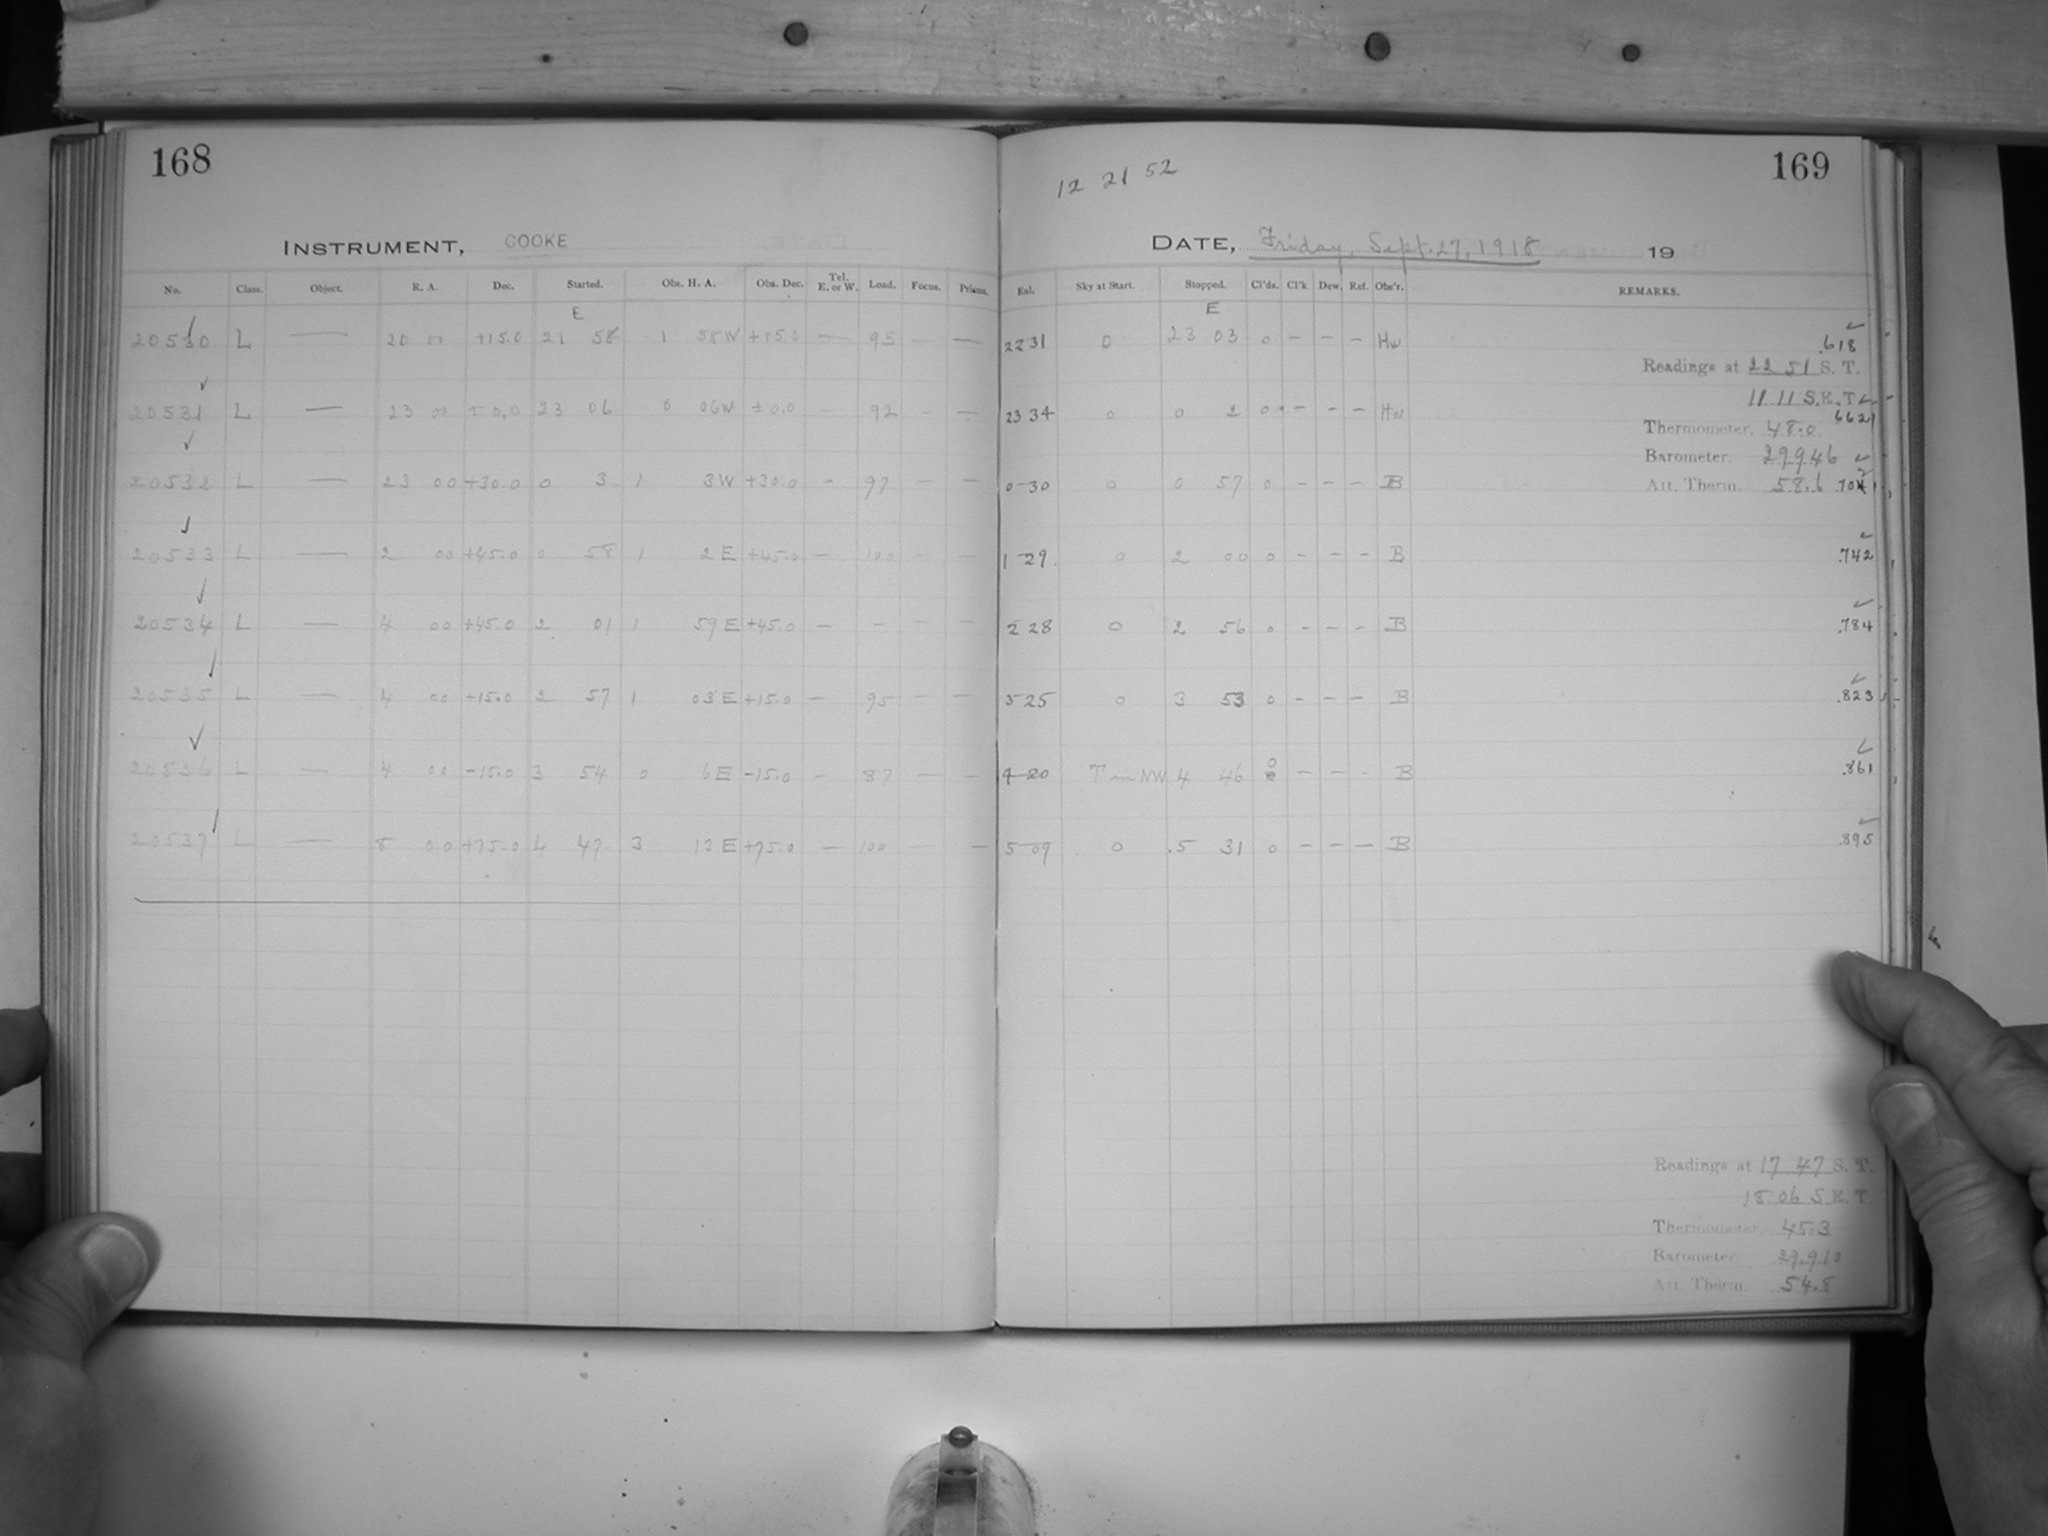 168
INSTRUMENT, COOKE
No. Class. Object. R. A. Dec. Started. Obs. H. A. Obs. Dec. Tel. E. or W. Load. Focus. Prisms.
E
20530 L — 20 00 +15.0 21 58 1 58 W +15.0 — 95 — —
20531 L — 23 00 ±0.0 23 06 0 06 W ±0.0 - 92 - —
20532 L — 23 00 +30.0 0 3 1 3 W +30.0 - 97 - -
20533 L — 2 00 +45.0 0 58 1 2 E +45.0 — 100 - -
20534 L — 4 00 +45.0 2 01 1 59 E +45.0 — - - -
20535 L — 4 00 +15.0 2 57 1 03 E +15.0 — 95 — —
20536 L — 4 00 -15.0 3 54 0 6 E -15.0 - 87 — —
20537 L — 8 00 +75.0 4 47 3 13 E +75.0 — 100 — —
12 21 52
169
DATE, Friday, Sept. 27, 1918 19
Exl. Sky at Start. Stopped. Cl'ds. Cl'k Dew. Ref. Obs'r. REMARKS.
E
22 31 0 23 03 0 - - - Hw .618
Readings at 22 51 S. T.
11 11 S.E.T.
23 34 0 0 2 0 - - - Hw 662
Thermometer. 48.0
Barometer. 29.946
0 30 0 0 57 0 - - - B
Att. Therm. 58.6
1 29 0 2 00 0 - - - B .742
2 28 0 2 56 0 - - - B .784
3 25 0 3 53 0 - - - B .823
4 20 T in NW 4 46 0 — — - B .861
5 09 0 5 31 0 — — — B .895
Readings at 17 47 S. T.
18 06 S.E.T.
Thermometer. 45.3
Barometer. 29.910
Att. Therm. 54.8